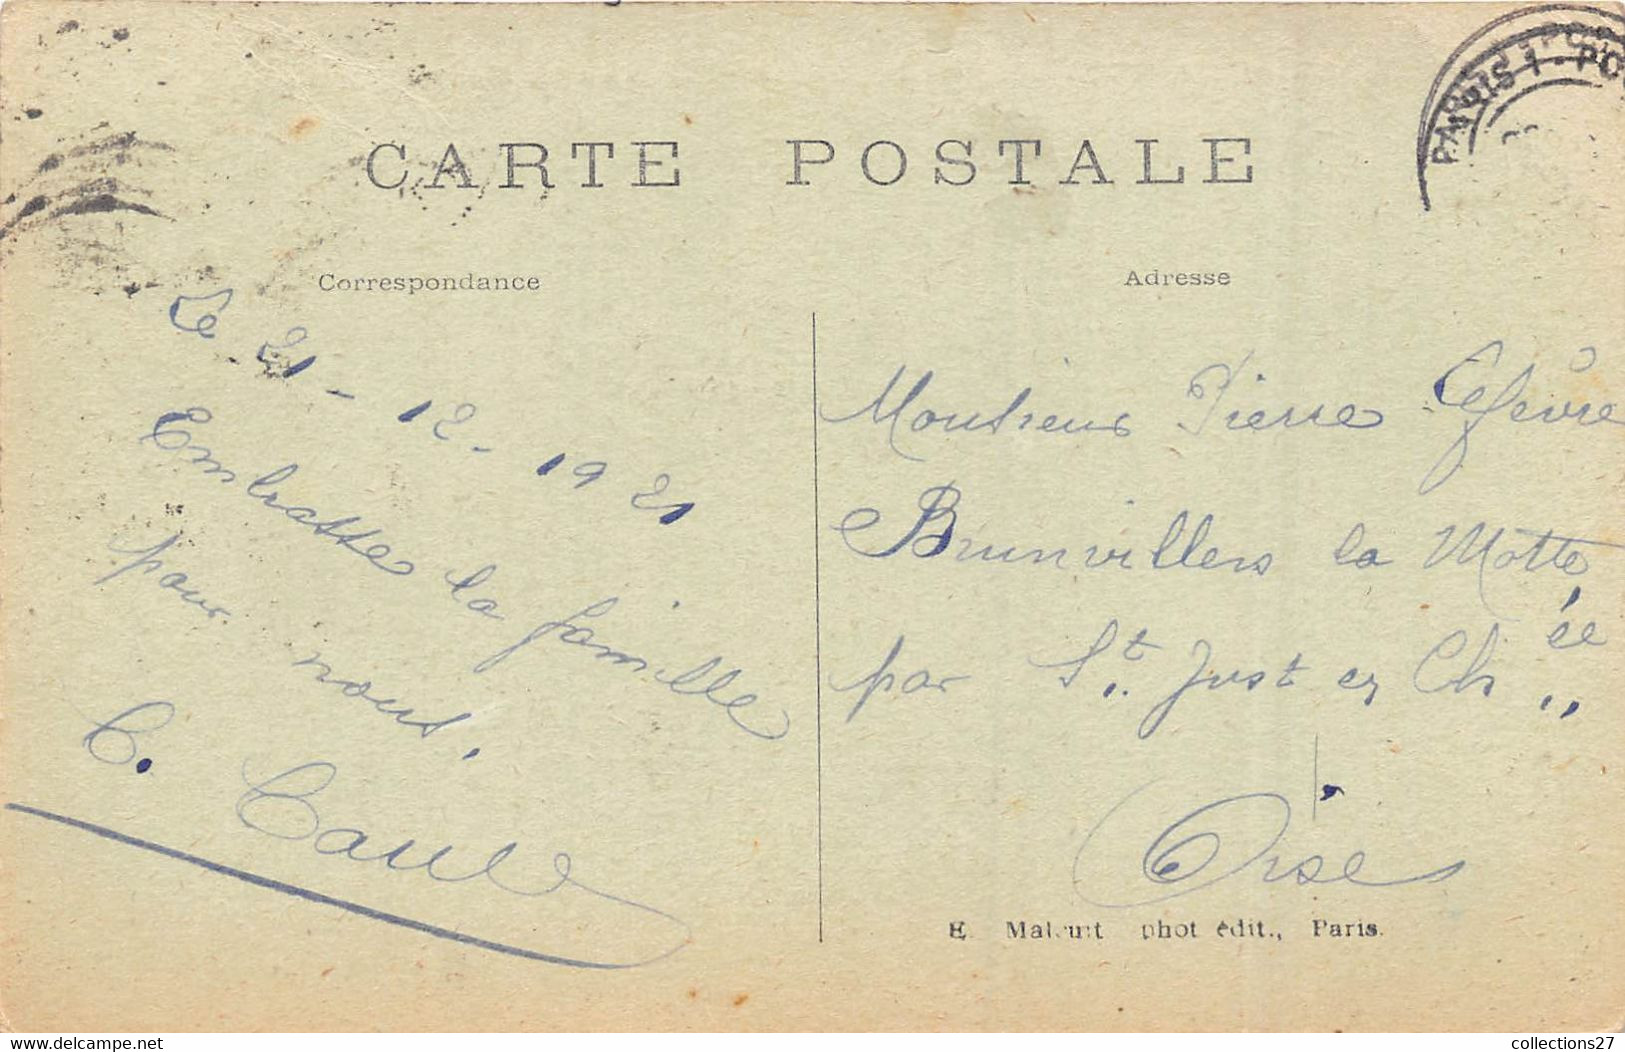 CARTE POSTALE
Correspondance
Le 21-12-1921
Embrasse la famille
pour nous.
C. Caule
Adresse
Monsieur Pierre Lefèvre
Brunvillers la Motte
par St. Just en Ch ée
Oise
E. phot édit., Paris.
PARIS 1 - PO
www.delcampe.net
collections27